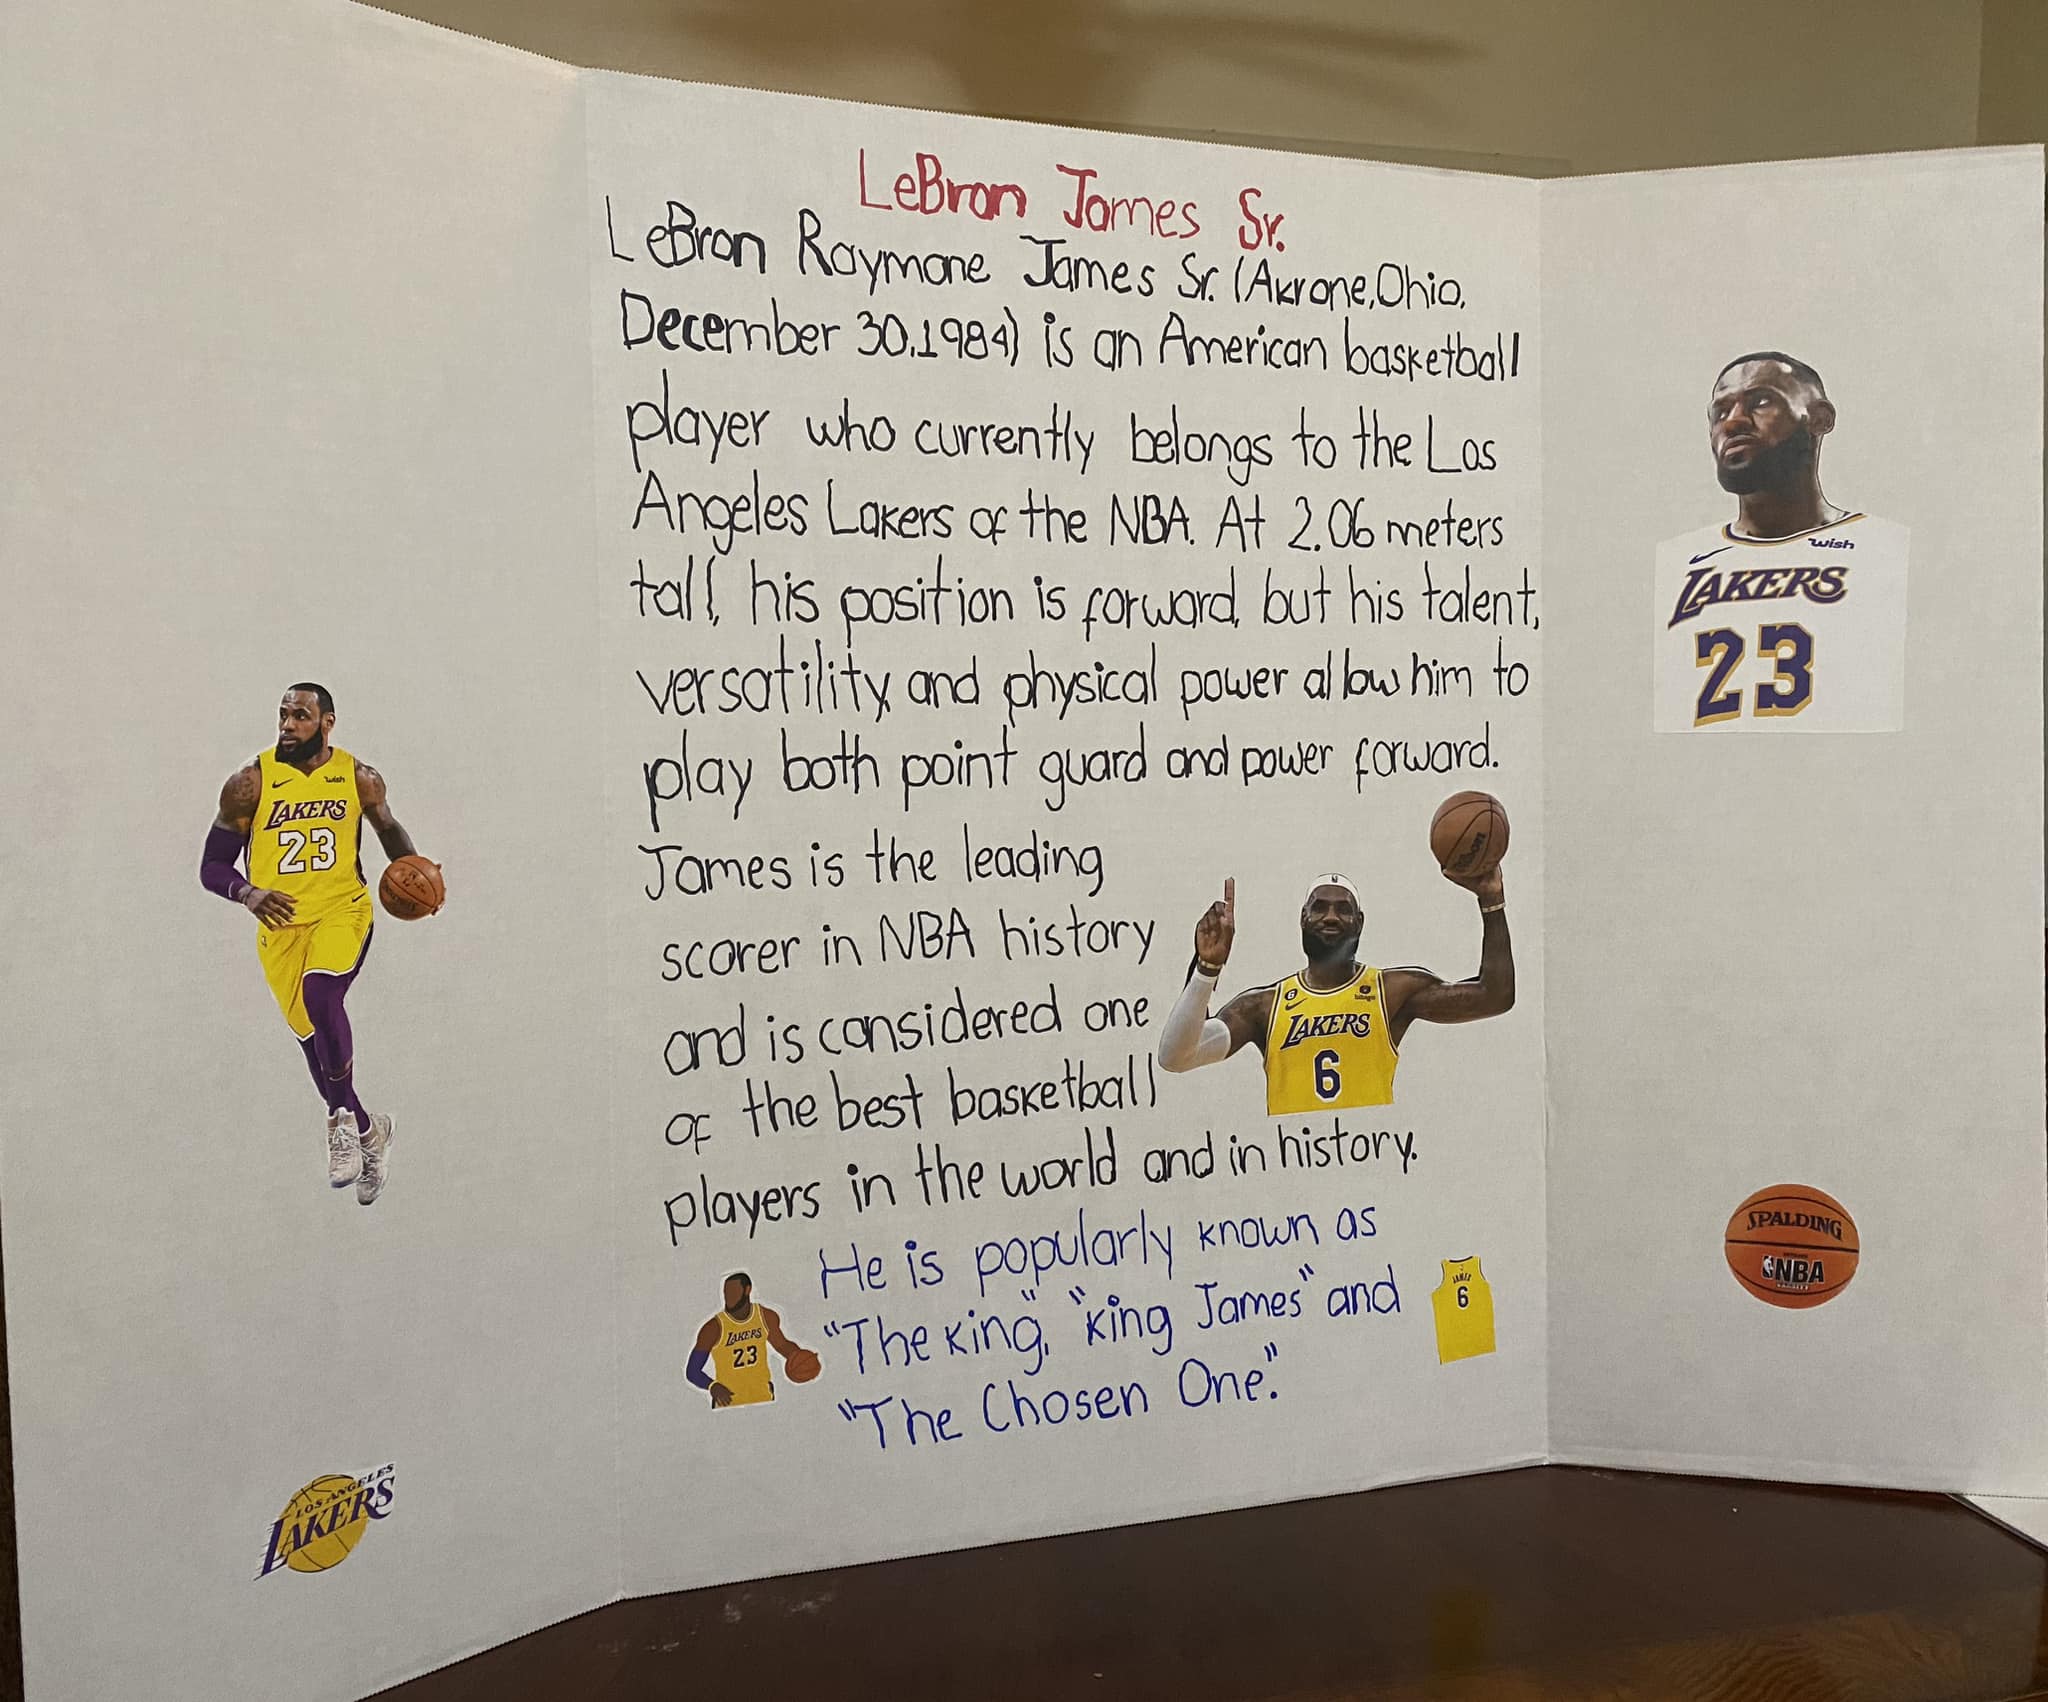 LeBron James Sr.
LeBron Raymone James Sr. (Akrone, Ohio,
December 30, 1984) is an American basketball
player who currently belongs to the Los
Angeles Lakers of the NBA. At 2.06 meters
tall, his position is forward, but his talent,
versatility, and physical power allow him to
play both point guard and power forward.
James is the leading
scorer in NBA history
and is considered one
of the best basketball
players in the world and in history.
He is popularly known as
"The king", "king James" and
"The Chosen One".
wish
LAKERS
23
LOS ANGELES
LAKERS
Wilson
6
bibigo
LAKERS
6
LAKERS
23
JAMES
6
wish
LAKERS
23
SPALDING
NBA